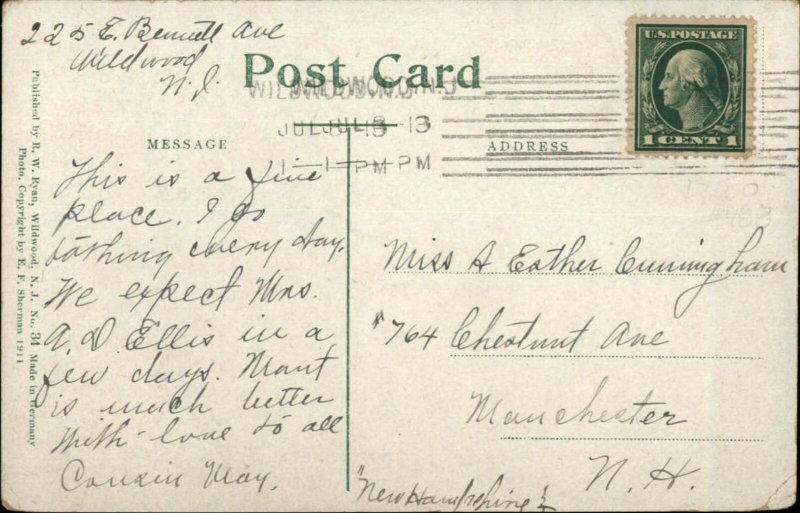 225 E. Bennett Ave
Wildwood
N.J.
Post Card
WILDWOOD, N.J.
JUL 8 13
1 - PM
U.S. POSTAGE
1 CENT 1
MESSAGE
ADDRESS
This is a fine
place. I go
bathing every day.
We expect Mrs.
A. D. Ellis in a
few days.
is much better
With love to all
Cousin May.
Miss A Esther Cunningham
#764 Chestnut Ave
Manchester
N. H.
"New Hampshire"
Published by R. W. Ryan, Wildwood, N. J. No. 34 Made in Germany
Photo. Copyright by E. F. Sherman 1911